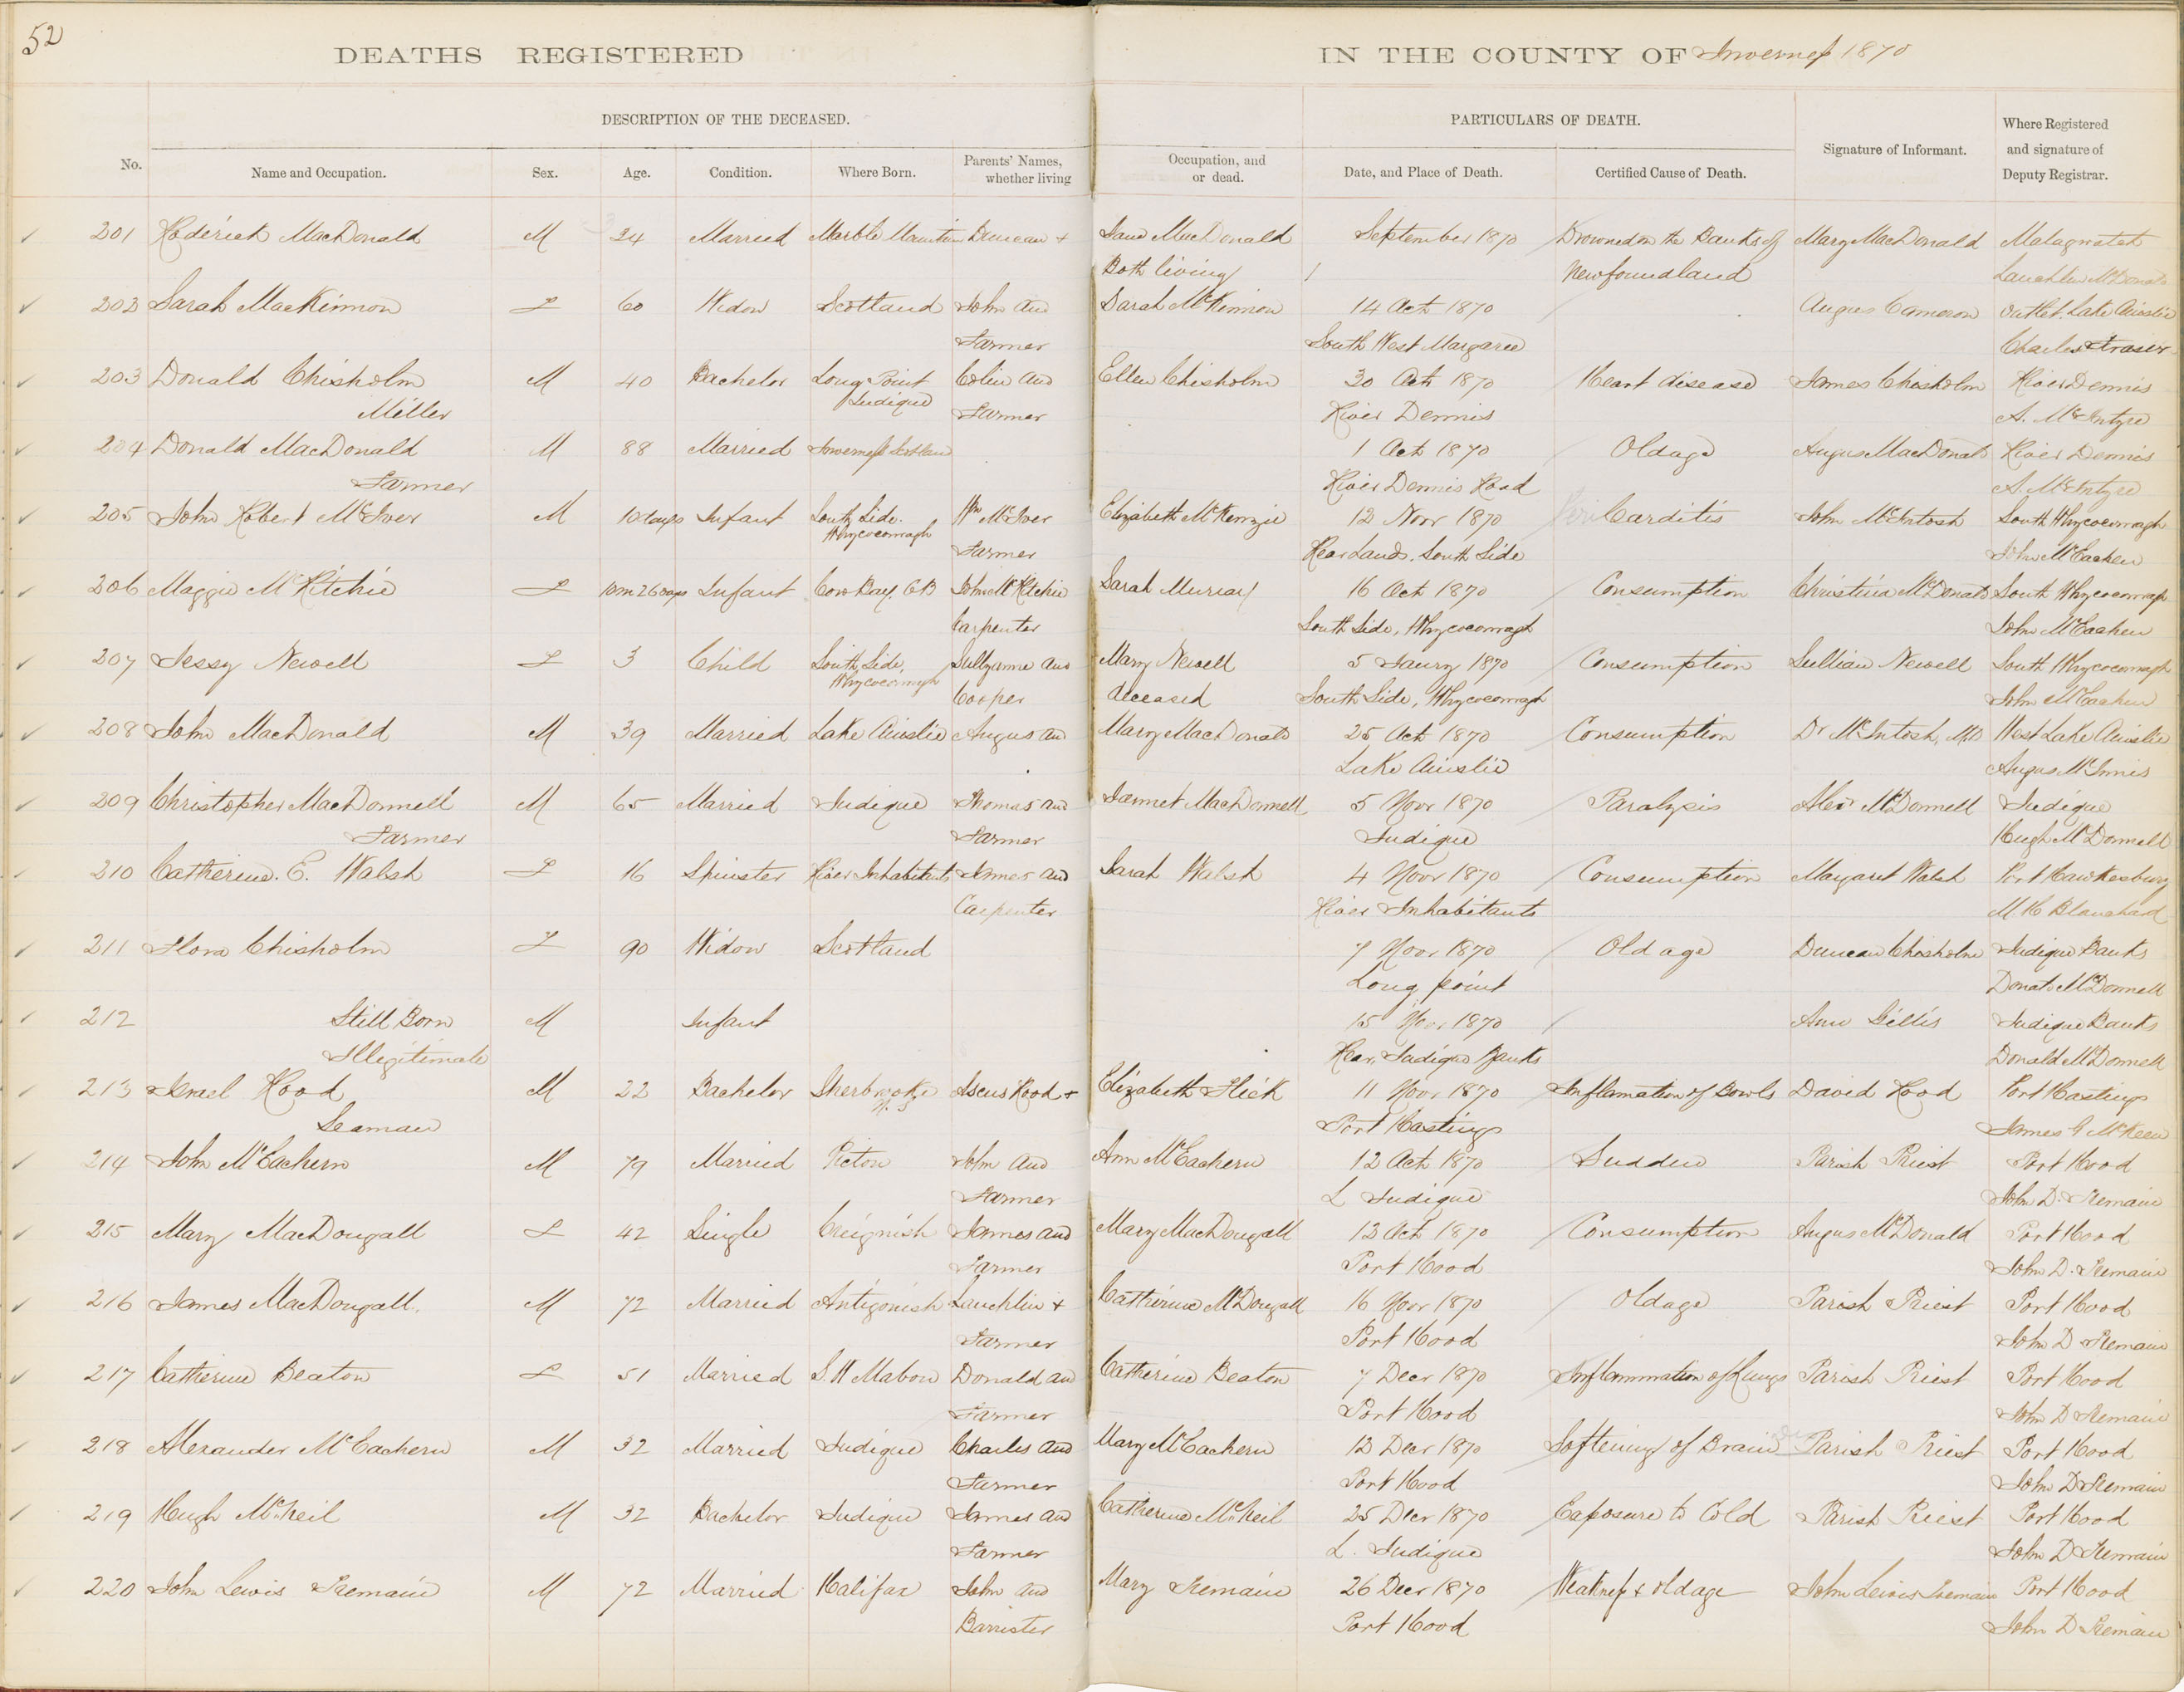 52
DEATHS REGISTERED IN THE COUNTY OF Inverness 1870
DESCRIPTION OF THE DECEASED. PARTICULARS OF DEATH.
No. Name and Occupation. Sex. Age. Condition. Where Born. Parents' Names, whether living Occupation, and or dead. Date, and Place of Death. Certified Cause of Death. Signature of Informant. Where Registered and signature of Deputy Registrar.
201 Roderick MacDonald M 24 Married Marble Mountain Duncan + Jane MacDonald September 1870 Drowned on the Banks of Mary MacDonald Malagwatch
Both living Newfoundland Lauchlin McDonald
202 Sarah MacKinnon F 60 Widow Scotland John and Sarah McKinnon 14 Oct 1870 Angus Cameron Outlet Lake Ainslie
Farmer South West Margaree Charles Fraser
203 Donald Chisholm M 40 Bachelor Long Point Judique Colin and Ellen Chisholm 30 Oct 1870 Heart disease James Chisholm River Dennis
Miller Farmer River Dennis A. McIntyre
204 Donald MacDonald M 88 Married Inverness Scotland 1 Oct 1870 Old age Angus MacDonald River Dennis
Farmer River Dennis Road A. McIntyre
205 John Robert McIver M 10 days Infant South Side. Whycocomagh Wm McIver Elizabeth McKenzie 12 Novr 1870 Carditis John McIntosh South Whycocomagh
Farmer Rear Lands. South Side John McEachen
206 Maggie McRitchie F 10m 26 days Infant Cow Bay. CB John McRitchie Sarah Murray 16 Oct 1870 Consumption Christina McDonald South Whycocomagh
Carpenter South Side, Whycocomagh John McEachen
207 Jessy Newell F 3 Child South Side, Whycocomagh Sullyanne and Mary Newell 5 Jany 1870 Consumption Sullian Newell South Whycocomagh
Cooper deceased South Side, Whycocomagh John McEachen
208 John MacDonald M 39 Married Lake Ainslie Angus and Mary MacDonald 25 Oct 1870 Consumption Dr McIntosh, MD West Lake Ainslie
Lake Ainslie Angus McInnis
209 Christopher MacDonnell M 65 Married Judique Thomas and Jannet MacDonnell 5 Novr 1870 Paralysis Alexr McDonnell Judique
Farmer Farmer Judique Hugh McDonnell
210 Catherine. E. Walsh F 16 Spinster River Inhabitants James and Sarah Walsh 4 Novr 1870 Consumption Margaret Walsh Port Hawkesbury
Carpenter River Inhabitants M H Blanchard
211 Flora Chisholm F 90 Widow Scotland 7 Novr 1870 Old age Duncan Chisholm Judique Banks
Long point Donald McDonnell
212 Still Born M Infant 15 Novr 1870 Ann Gillis Judique Banks
Illegitimate Rear, Judique Banks Donald McDonnell
213 Israel Hood M 22 Bachelor Sherbrooke N.S Hood + Elizabeth Flick 11 Novr 1870 Inflamation of Bowls David Hood Port Hastings
Seaman Port Hastings James G McKeen
214 John McEachern M 79 Married Picton John and Ann McEachern 12 Oct 1870 Sudden Parish Priest Port Hood
Farmer L Judique John D. Tremain
215 Mary MacDougall F 42 Single Creignish James and Mary MacDougall 12 Oct 1870 Consumption Angus McDonald Port Hood
Farmer Port Hood John D. Tremain
216 James MacDougall. M 72 Married Antigonish Lauchlin + Catherine McDougall 16 Novr 1870 Old age Parish Priest Port Hood
Farmer Port Hood John D Tremain
217 Catherine Beaton F 51 Married S.W Mabou Donald and Catherine Beaton 7 Decr 1870 Inflammation of Lungs Parish Priest Port Hood
Farmer Port Hood John D Tremain
218 Alexander McEachern M 32 Married Judique Charles and Mary McEachern 12 Decr 1870 Softening of Brain Parish Priest Port Hood
Farmer Port Hood John D Tremain
219 Hugh McNeil M 32 Bachelor Judique James and Catherine McNeil 25 Decr 1870 Exposure to Cold Parish Priest Port Hood
Farmer L. Judique John D Tremain
220 John Lewis Tremain M 72 Married Halifax John and Mary Tremain 26 Decr 1870 Weakness & old age John Lewis Tremain Port Hood
Barrister Port Hood John D Tremain